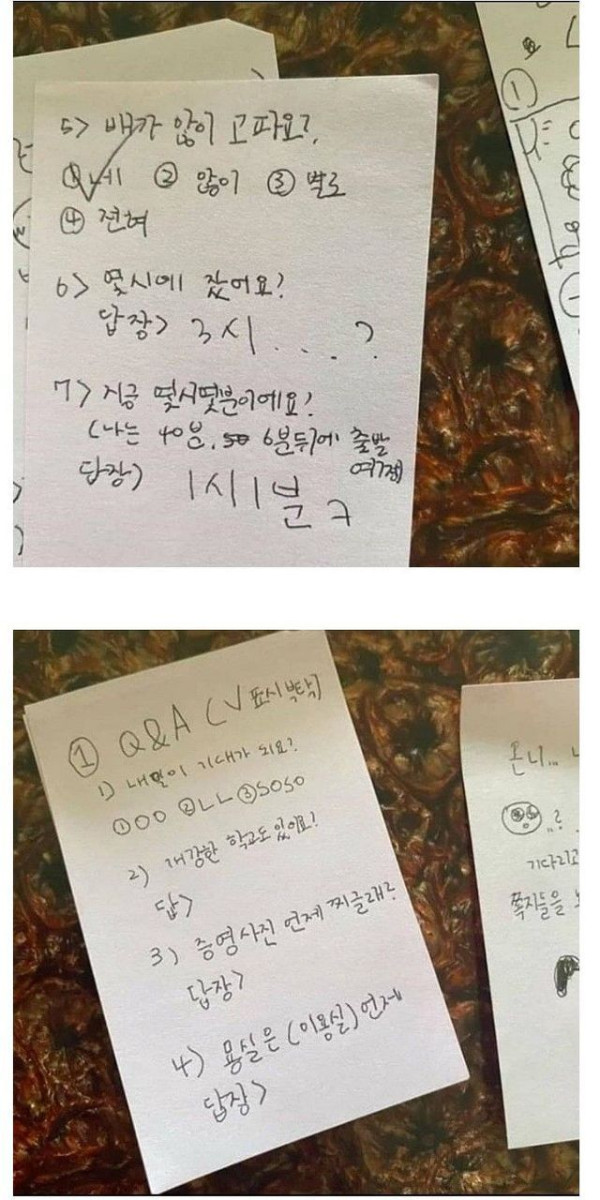 5> 배가 많이 고파요?
① 네 ② 많이 ③ 별로
④ 전혀
6> 몇시에 잤어요?
답장> 3시 . . . . ?
7> 지금 몇시몇분이에요?
(나는 40분, 6분뒤에 출발
예정)
답장> 1시1분ㅋ
①
① Q&A (V 표시부탁)
1) 내일이 기대가 되요?
①OO ②LL ③SOSO
2) 개강한 학교도 있어요?
답>
3) 증명사진 언제 찍을래?
답장>
4) 용실은 (이용실) 언제
답장>
...?
기다리고
쪽지들을